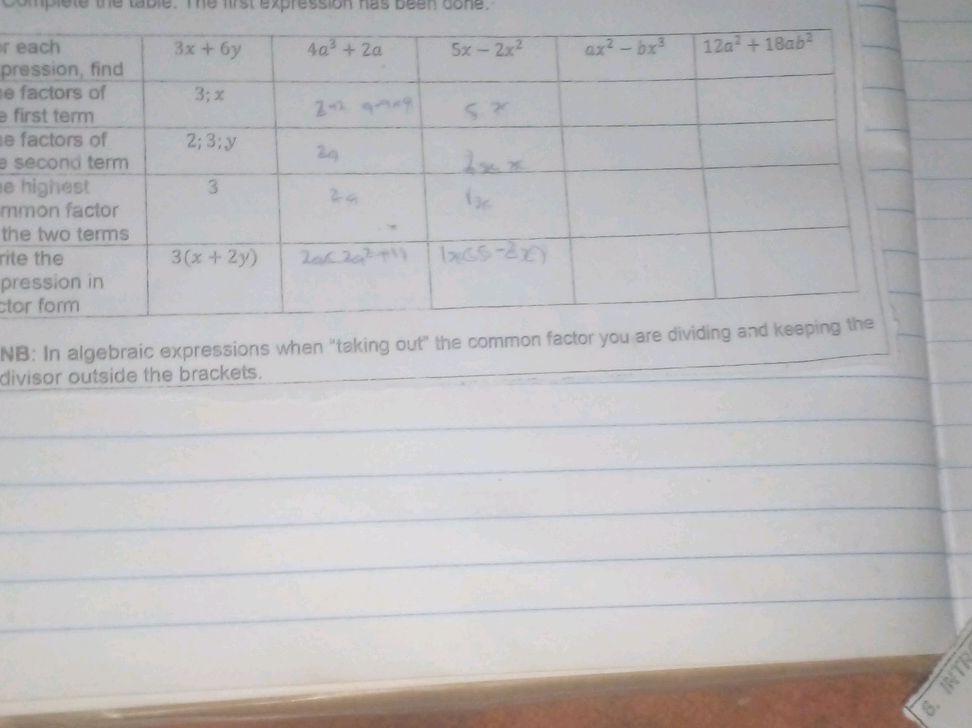 Complete the table. The first expression has been done.
r each 3x + 6y 4a³ + 2a 5x − 2x² ax² − bx³ 12a² + 18ab²
pression, find
e factors of 3; x 2×2 a×a×a 5 x
e first term
e factors of 2; 3; y 2a 2x x
e second term
e highest 3 2a 1x
mmon factor
the two terms
rite the 3(x + 2y) 2a(2a²+1) 1x(5-2x)
pression in
ctor form
NB: In algebraic expressions when "taking out" the common factor you are dividing and keeping the
divisor outside the brackets.
8. INTR